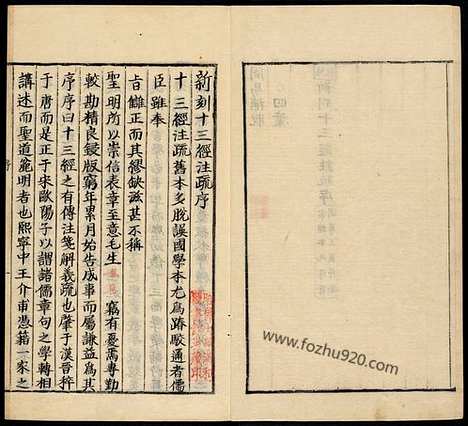 新刻十三經注疏序
十三經注疏舊本多脫誤國學本尤爲踳駮通者儒
臣雖奉
旨讎正而繆缺滋甚不稱
聖明所以崇信表章至意毛生 竊有憂焉專勤
較勘精良鋟版窮年累月始告成事而屬謙益爲其
序序曰十三經之有傳注箋解義疏也肇于漢晉粹
于唐而是正于宋歐陽子以謂諸儒章句之學轉相
講述而聖道麤明者也熙寧中王介甫憑藉一家之
www.fozhu920.com